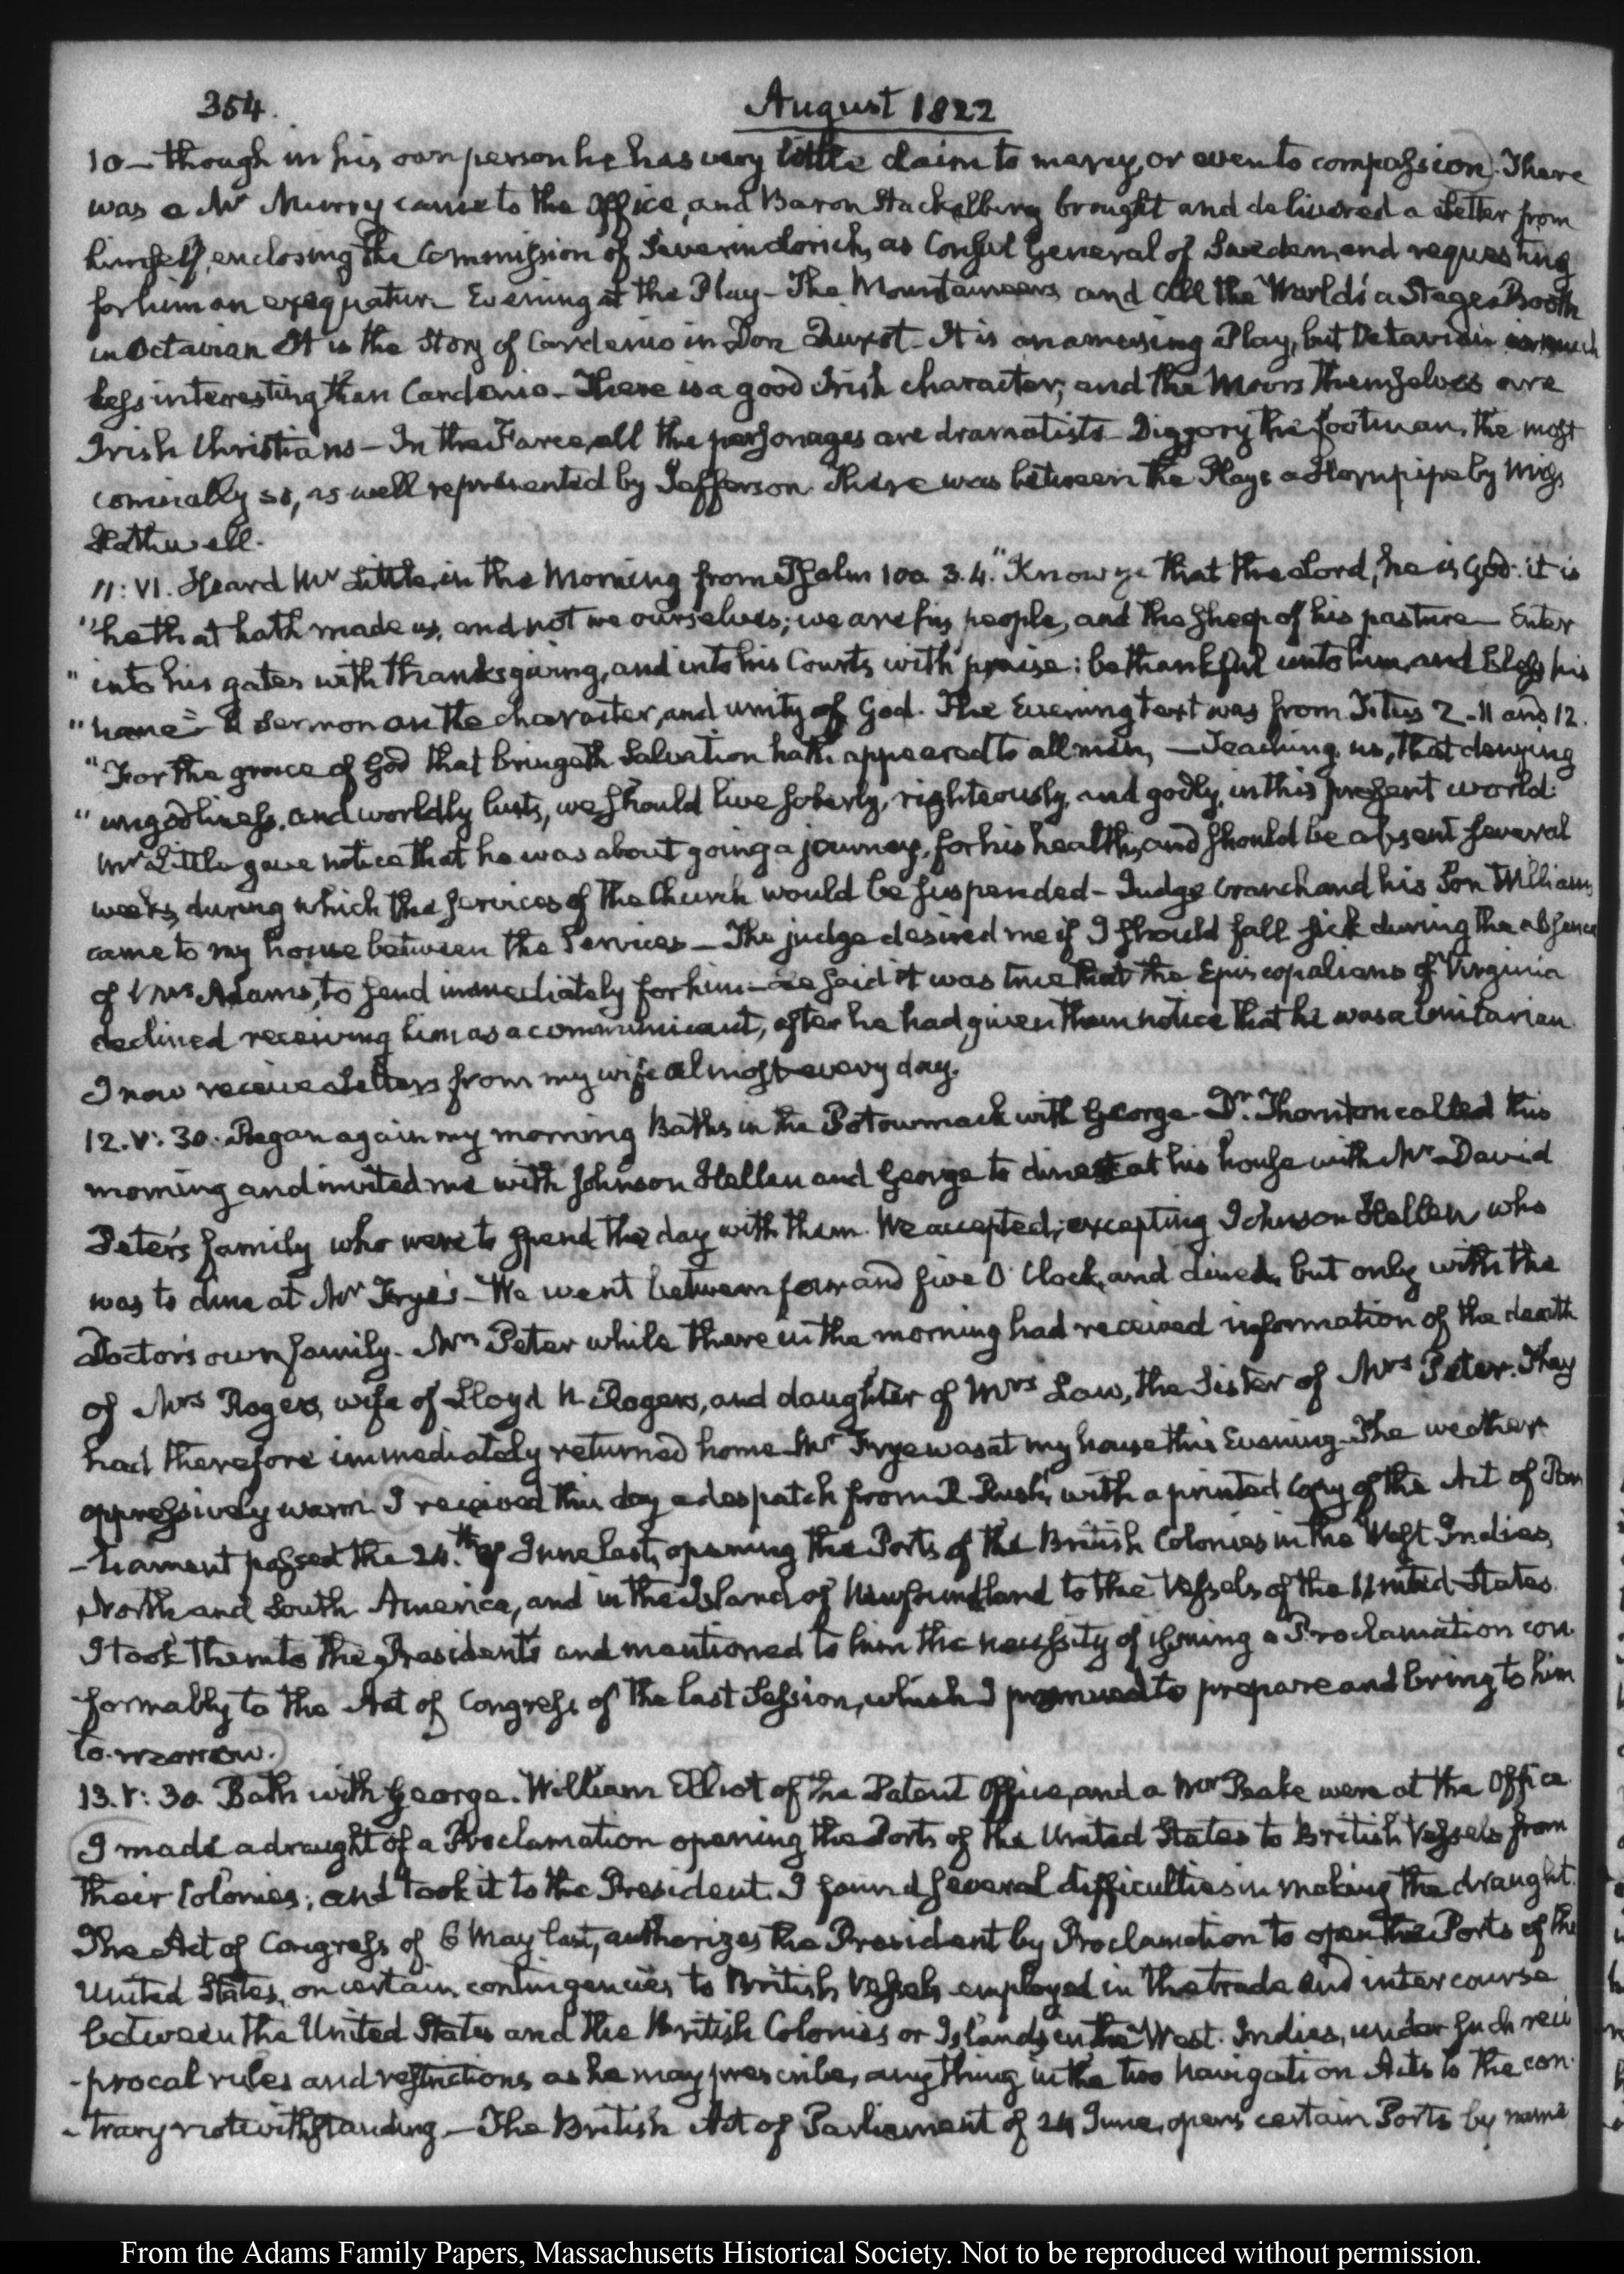 354.
August 1822
10 — though in his own person he has very little claim to mercy, or even to compassion). There
was a Mr Murry came to the Office, and Baron Stackelberg brought and delivered a Letter from
himself, enclosing the Commission of Severin Lorich, as Consul General of Sweden, and requesting
for him an exequatur — Evening at the Play — The Mountaineers and All the World's a Stage. Booth
in Octavian. It is the Story of Cardenio in Don Quixot — It is an amusing Play, but Octavian is much
less interesting than Cardenio — There is a good Irish character; and the Moors themselves are
Irish Christians — In the Farce, all the personages are dramatists — Diggory the footman, the most
comically so, is well represented by Jefferson. There was between the Plays a Hornpipe by Miss
Hathwell.
11: VI. Heard Mr Little, in the Morning from Psalm 100. 3.4. "Know ye that the Lord, he is God: it is
"he that hath made us, and not we ourselves; we are his people, and the sheep of his pasture — Enter
"into his gates with thanksgiving, and into his Courts with praise: be thankful unto him, and bless his
"name" — A Sermon on the character, and unity of God. The Evening text was from Titus 2 - 11 and 12.
"For the grace of God that bringeth Salvation hath appeared to all men, — Teaching us, that denying
"ungodliness, and worldly lusts, we should live soberly, righteously, and godly, in this present world:
Mr Little gave notice that he was about going a journey, for his health, and should be absent several
weeks, during which the services of the Church would be suspended — Judge Cranch and his Son William
came to my house between the Services — The judge desired me if I should fall sick during the absence
of Mrs Adams, to send immediately for him — He said it was true that the Episcopalians of Virginia
declined receiving him as a communicant, after he had given them notice that he was a Unitarian.
I now receive Letters from my wife almost every day.
12. V: 30. Began again my morning Baths in the Potowmack with George — Dr. Thornton called this
morning and invited me with Johnson Hellen and George to dine at his house with Mr David
Peter's family who were to spend the day with them. We accepted, excepting Johnson Hellen who
was to dine at Mr Frye's — We went between four and five O'Clock, and dined, but only with the
Doctor's own family — Mrs Peter while there in the morning had received information of the death
of Mrs Rogers, wife of Lloyd N. Rogers, and daughter of Mrs Law, the Sister of Mrs Peter. They
had therefore immediately returned home — Mr Frye was at my house this Evening — The weather
oppressively warm. I received this day a despatch from R. Rush, with a printed Copy of the Act of Par
-liament passed the 24.th of June last, opening the Ports of the British Colonies in the West Indies,
North and South America, and in the Island of Newfoundland to the Vessels of the United States.
I took them to the President's and mentioned to him the necessity of issuing a Proclamation con
formably to the Act of Congress of the last Session, which I promised to prepare and bring to him
to-morrow.)
13. V: 30. Bath with George. William Elliot of the Patent Office, and a Mr Peake were at the Office
I made a draught of a Proclamation opening the Ports of the United States to British Vessels from
their Colonies; and took it to the President. I found several difficulties in making the draught.
The Act of Congress of 6 May last, authorizes the President by Proclamation to open the Ports of the
United States, on certain contingencies to British Vessels employed in the trade and intercourse
between the United States and the British Colonies or Islands in the West Indies, under such reci
-procal rules and restrictions as he may prescribe, any thing in the two Navigation Acts to the con
-trary notwithstanding — The British Act of Parliament of 24 June, opens certain Ports by name
From the Adams Family Papers, Massachusetts Historical Society. Not to be reproduced without permission.